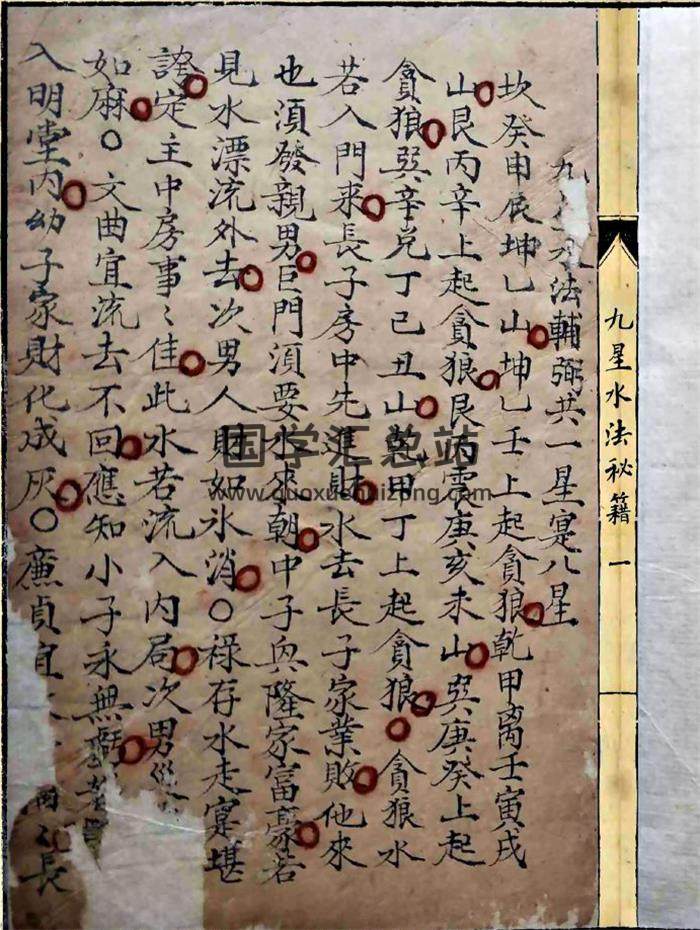 九星水法秘籍 一
九星水法輔弼共一星寔八星
坎癸申辰坤乚山坤乚壬上起貪狼乾甲离壬寅戌
山艮丙辛上起貪狼艮丙震庚亥未山巽庚癸上起
貪狼巽辛兑丁己丑山乾甲丁上起貪狼貪狼水
若入門来長子房中先進財水去長子家業敗他來
也湏發親男巨門湏要水來朝中子興隆家富豪若
見水漂流外去次男人財如氷消〇禄存水走寔堪
誇定主中房事〻佳此水若流入内局次男
如麻〇文曲宜流去不回應知小子永無
入明堂内幼子家財化成灰〇廉貞宜
長
国学汇总站
www.guoxuehuizong.com